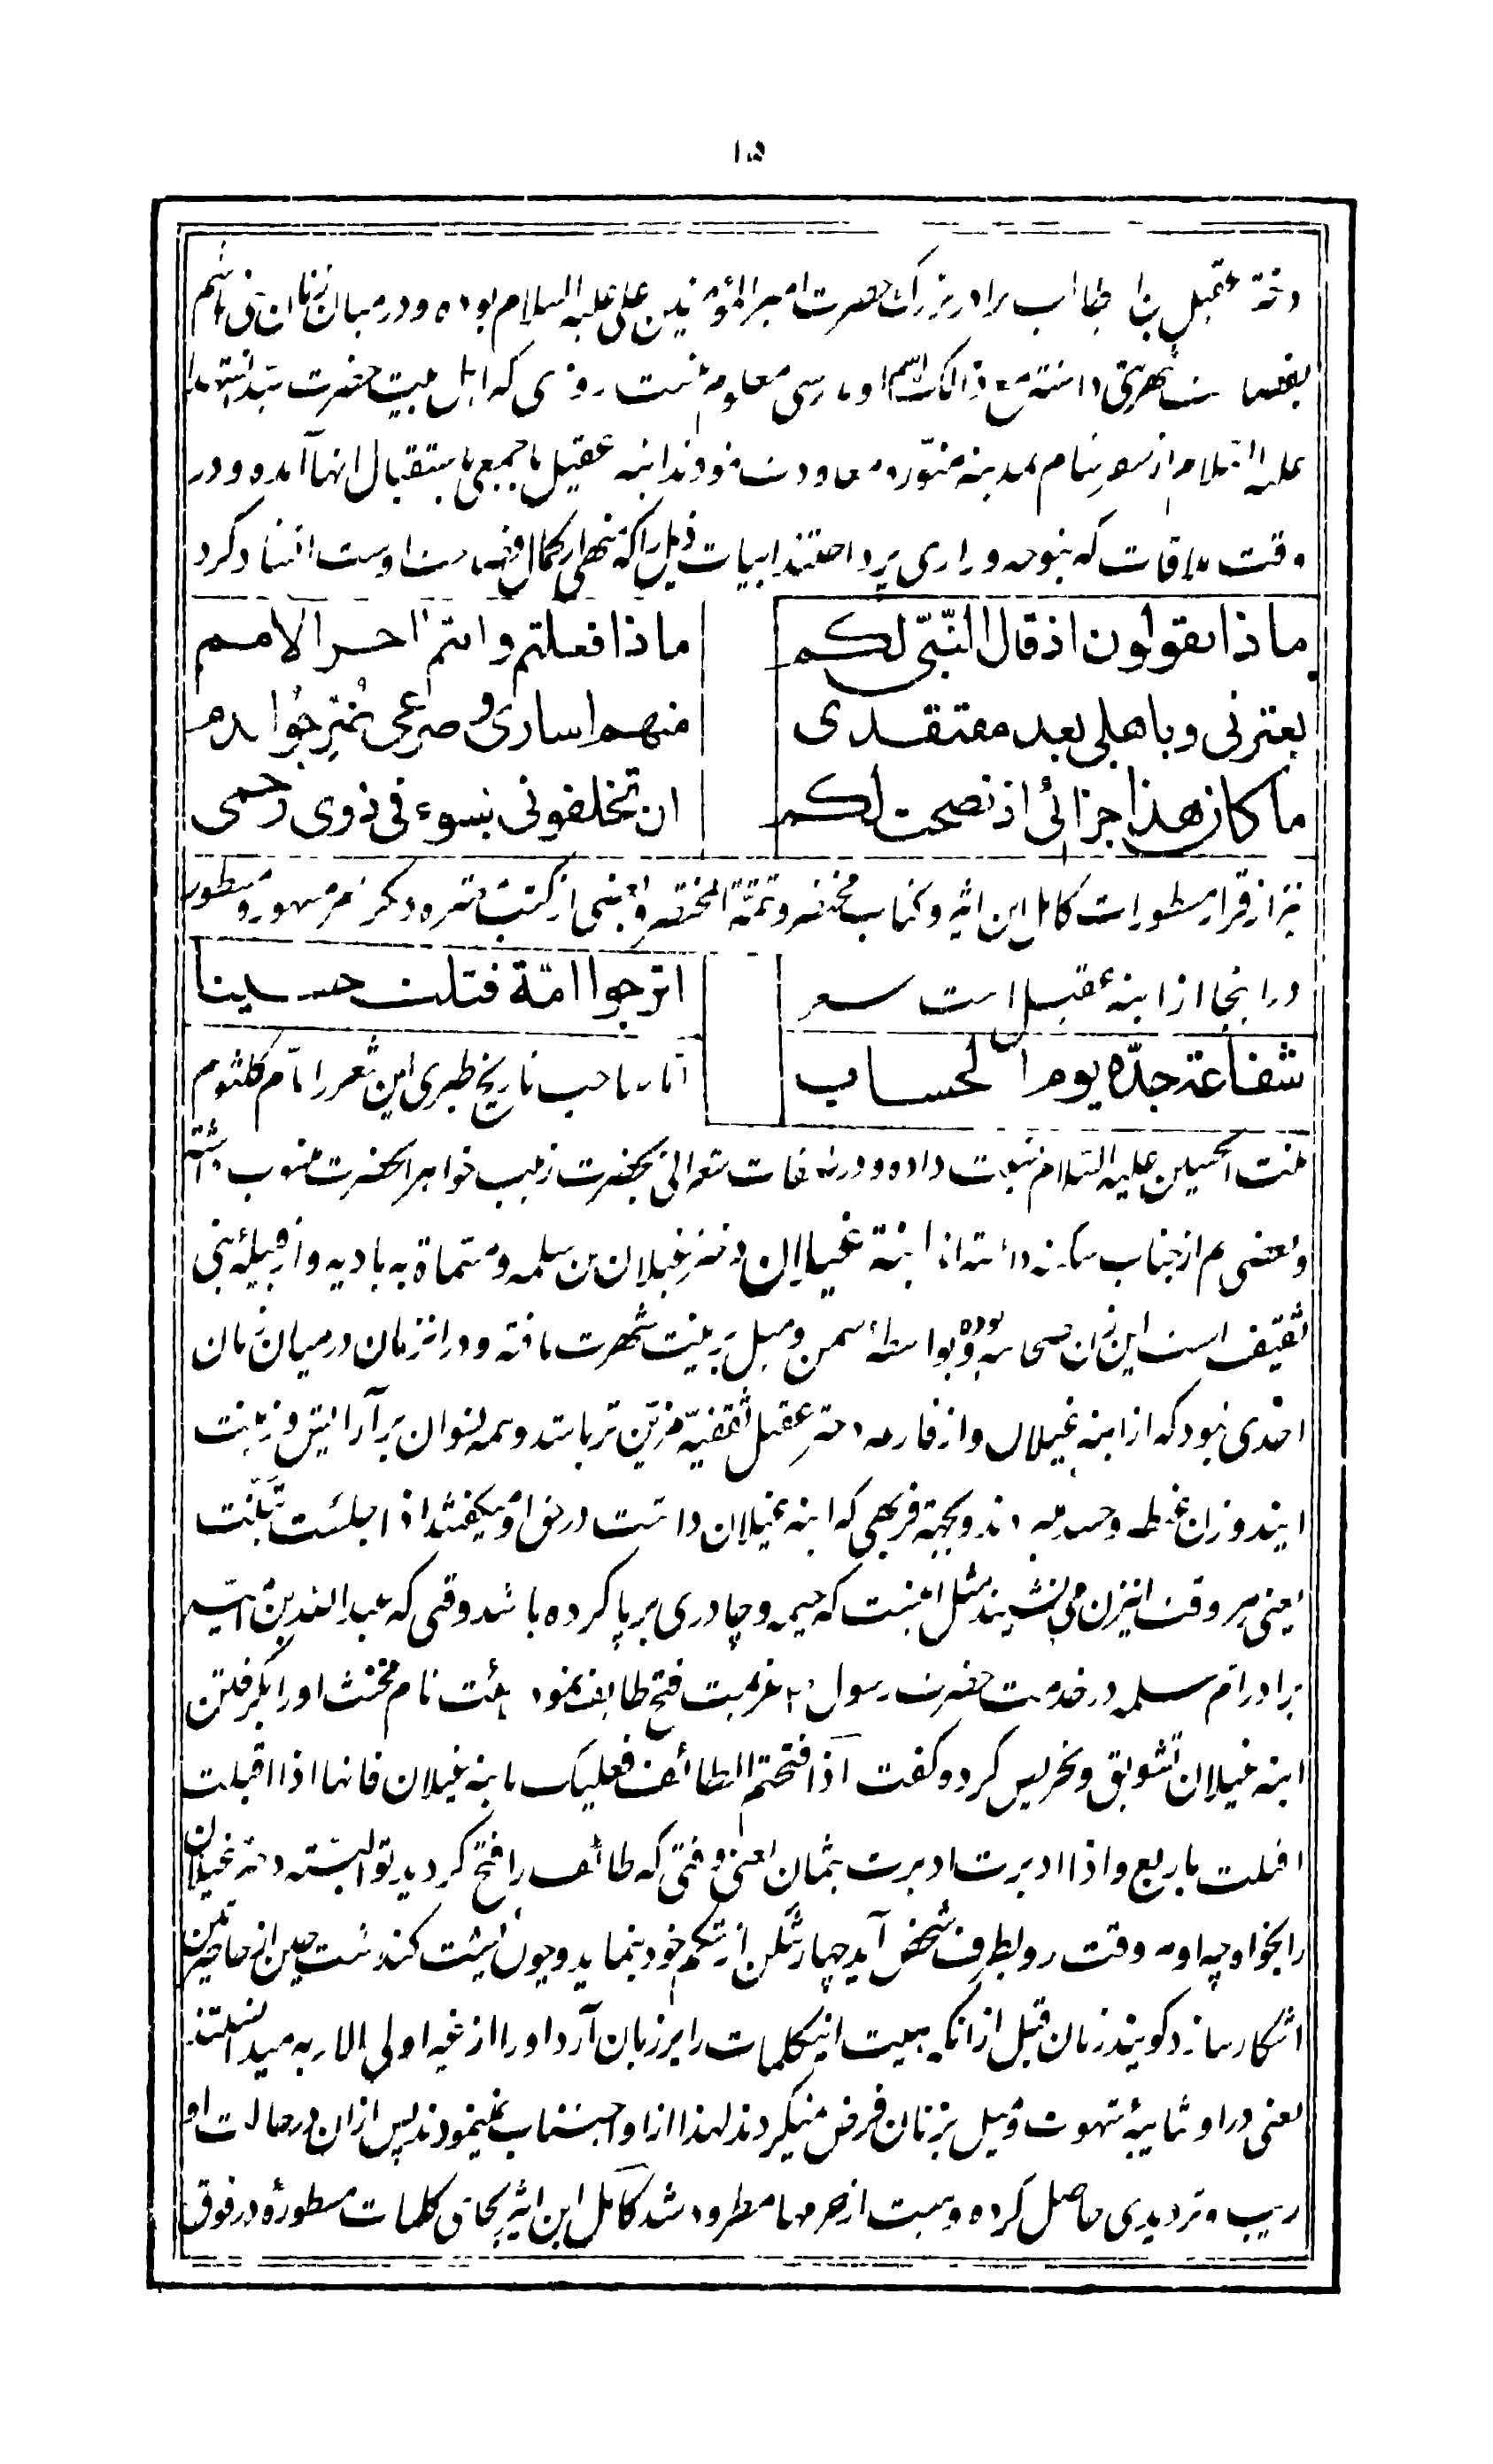 ۱۵
دختر عقیل بن ابیطالب برادر بزرگ حضرت امیرالمؤمنین علی علیه السلام بوده و در میان زنان بنی هاشم
بفصاحت شهرتی داشته مع ذالک اسم او بدرستی معلوم نیست روزی که اهل بیت حضرت سیدالشهدا
علیه السلام از سفر شام بمدینه منوّره معاودت نمودند ابنه عقیل با جمعی باستقبال انها آمده و در
وقت ملاقات که بنوحه و زاری پرداختند ابیات ذیل را که منتهی از کمال فصاحت اوست انشاد کرد
ماذا تقولون اذ قال النّبیّ لکم ماذا فعلتم و انتم آخر الامم
بعترتی و باهلی بعد مفتقدی منهم اساری و صرعی ضُرّجُوا بدم
ما کان هذا جزائی اذ نصحت لکم ان تخلفونی بسوء فی ذوی رحمی
نیز از قرار مسطورات کامل ابن اثیر و کتاب مختصر و تتمّة المختصر و بعضی از کتب معتبره دیگر شعر مشهور و مسطور
در اینجا از ابنهٔ عقیل است شعر اترجوا امّة قتلت حسینا
شفاعة جدّه یوم الحساب امّا صاحب تاریخ طبری این شعر را بامّ کلثوم
بنت الحسین علیه السّلام نسبت داده و در طبقات شعرانی بحضرت زینب خواهر انحضرت منسوب داشته
و بعضی هم از جناب سکینه دانسته اند ابنة غیلان دختر غیلان بن سلمه و مسّماة به بادیه و از قبیلهٔ بنی
ثقیف است این زن صحابیه بوده و بواسطهٔ سمن و میل بزینت شهرت یافته و در انزمان در میان زنان
احدی نبود که از ابنه غیلان و از فارعه دختر عقیل ثقفیّه مزیّن تر باشد و همه نسوان بر آرایش و زینت
ایندو زن غبطه و حسد میبردند و بجهة فربهی که ابنه غیلان داشت در حق او میگفتند اذا جلست تبنّت
یعنی هر وقت اینزن می نشیند مثل اینست که خیمه و چادری برپا کرده باشد وقتی که عبدالله بن امیّه
برادر ام سلمه در خدمت حضرت رسول ص عزیمت فتح طایف نمود هئت نام مخنث او را بگرفتن
ابنه غیلان تشویق و تحریص کرد و گفت اذا فتحتم الطائف فعلیک بابنه غیلان فانها اذا اقبلت
اقبلت باربع و اذا ادبرت ادبرت بثمان یعنی وقتی که طائف را فتح کردید تو البته دختر غیلان
را بخواه چه او هر وقت رو بطرف شخص آید چهار شکن از شکم خود بنماید و چون پشت کند هشت چین از خاصرتین
آشکار سازد گویند زنان قبل از انکه هیت اینکلمات را بر زبان آرد او را از غیر اولی الاربه میدانستند
یعنی در او شایبهٔ شهوت و میل بزنان فرض نمیکردند لهذا از او اجتناب نمینمودند پس از ان در حالت او
ریب و تردیدی حاصل کرده و هیت از حرمها مطرود شد کامل ابن اثیر بجای کلمات مسطورهٔ در فوق